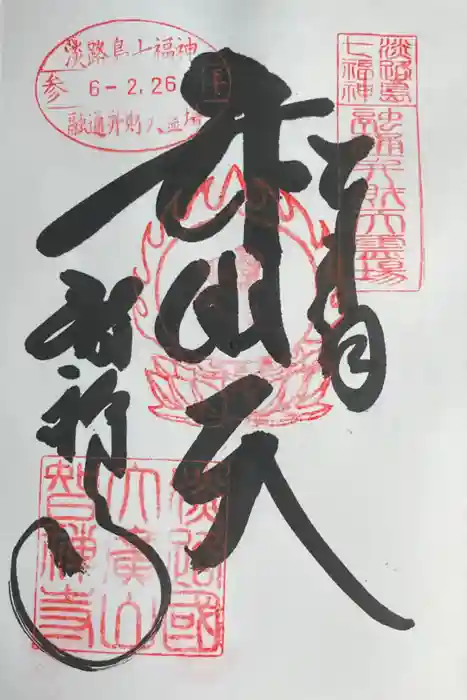 淡路島七福神
融通弁財天霊場
淡路島七福神
参
6-2.26
拝
融通弁財天霊場
弁財天
智禅寺
淡路國
大廣山
智禅寺